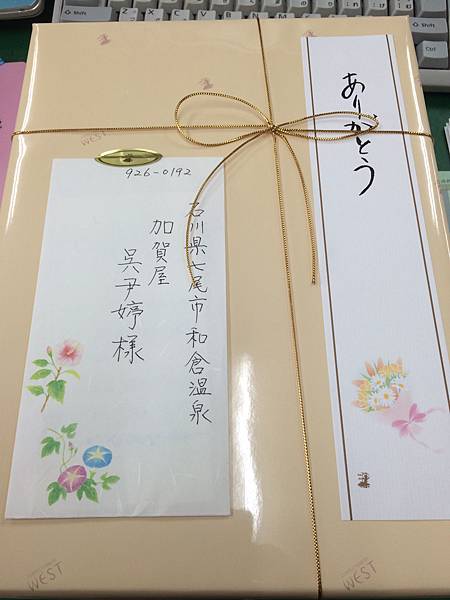 926-0192
石川県七尾市和倉温泉
加賀屋
呉尹婷様
ありがとう
WEST
WEST
WEST
Shift
Shift
Ctrl